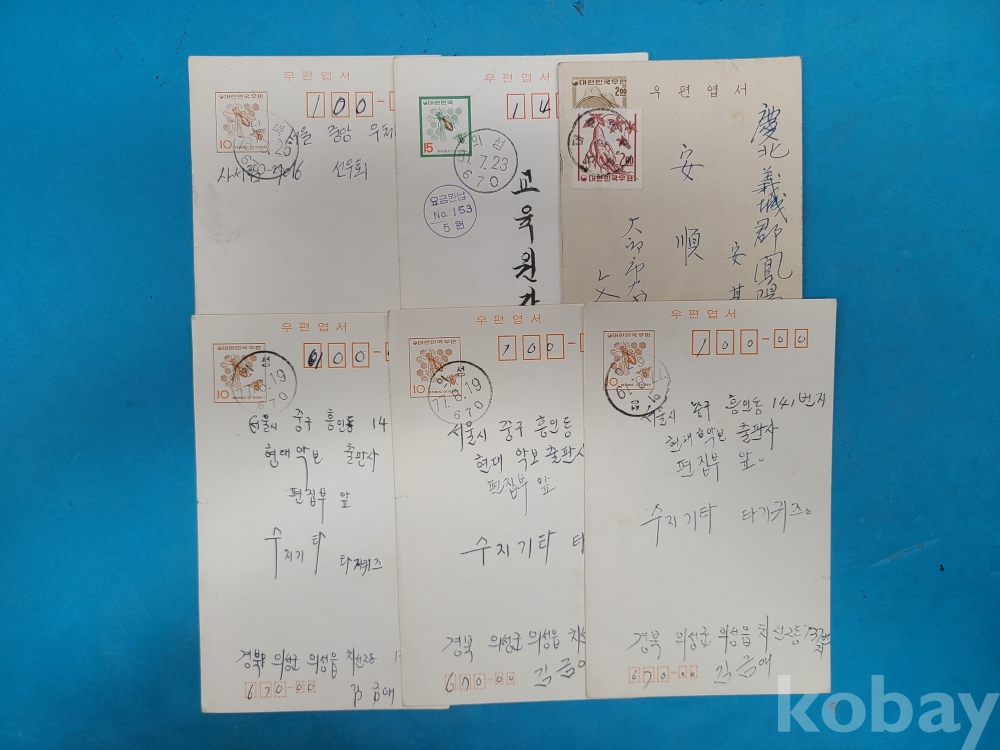 우편엽서
대한민국우편
10
100-
서울 중앙 우체
사서함
선우회
670
우편엽서
대한민국
REPUBLIC OF KOREA
15
14
의성
7.23
670
요금완납
No. 153
5 원
교육원
우편엽서
대한민국우편
2.00
2.00
대한민국우표
慶北義城郡鳳陽
安
順
安
우편엽서
대한민국우편
10
100-
의성
77.8.19
670
서울시 중구 흥인동 14
현대 악보 출판사
편집부 앞
수지기타
타기퀴즈
경북 의성군 의성읍 치선2동
670-00
김금애
우편엽서
대한민국우편
10
100-0
의성
77.8.19
670
서울시 중구 흥인동
현대 악보 출판사
편집부 앞
수지기타
경북 의성군 의성읍 치선
670-00
김금애
우편엽서
대한민국우편
10
100-00
서울시 중구 흥인동 141번지
현대악보 출판사
편집부 앞.
수지기타 타기퀴즈.
경북 의성군 의성읍 치선2동
670-00
김금애
kobay